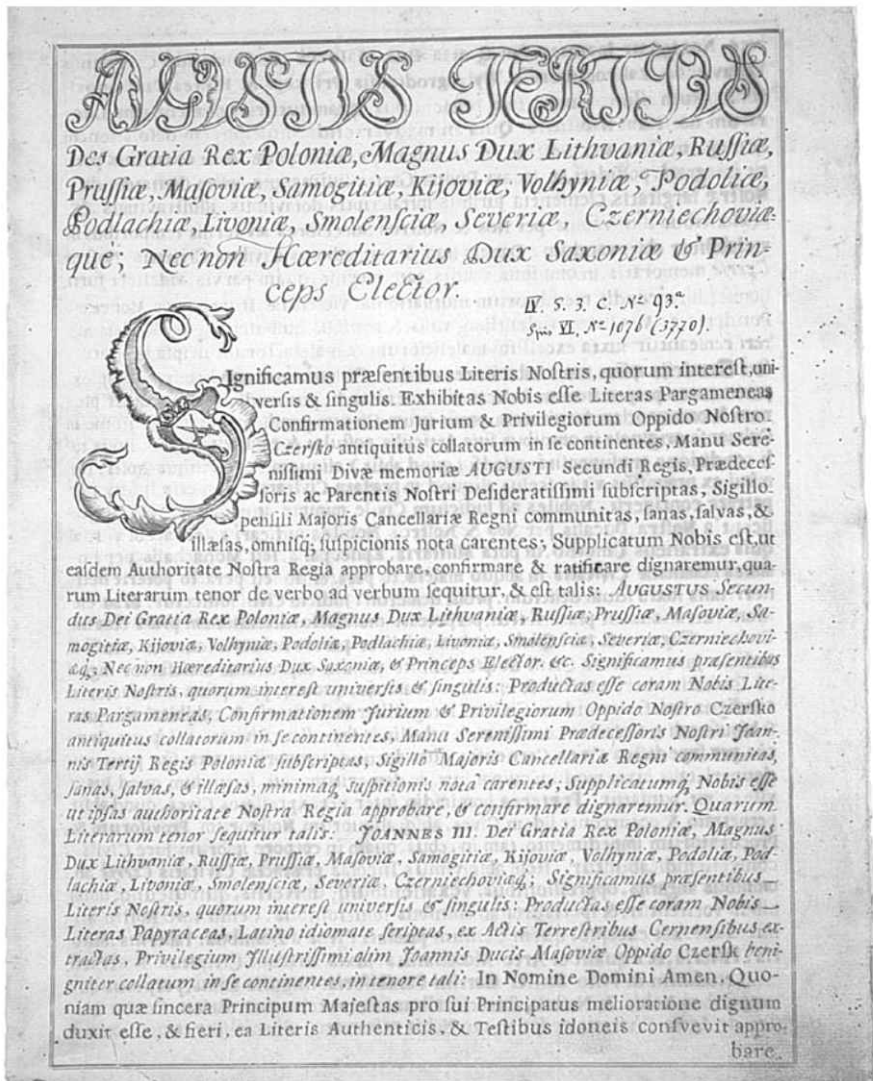 AUGUSTUS TERTIUS
Dei Gratia Rex Poloniæ, Magnus Dux Lithvaniæ, Ruſſiæ,
Pruſſiæ, Maſoviæ, Samogitiæ, Kijoviæ, Volhyniæ, Podoliæ,
Podlachiæ, Livoniæ, Smolenſciæ, Severiæ, Czerniechoviæ-
què; Nec non Hæreditarius Dux Saxoniæ & Prin-
ceps Elector.
IV. S. 3. C. Nº 93.
VI. Nº 1076 (3770).
SIgnificamus præſentibus Literis Noſtris, quorum intereſt, uni-
verſis & ſingulis. Exhibitas Nobis eſſe Literas Pargameneas
Confirmationem Jurium & Privilegiorum Oppido Noſtro
Czerſko antiquitus collatorum in ſe continentes, Manu Sere-
niſſimi Divæ memoriæ AUGUSTI Secundi Regis, Prædeceſ-
ſoris ac Parentis Noſtri Deſideratiſſimi ſubſcriptas, Sigillo
penſili Majoris Cancellariæ Regni communitas, ſanas, ſalvas, &
illæſas, omniſq; ſuſpicionis nota carentes; Supplicatum Nobis eſt, ut
eaſdem Authoritate Noſtra Regia approbare, confirmare & ratificare dignaremur, qua-
rum Literarum tenor de verbo ad verbum ſequitur, & eſt talis: AUGUSTUS Secun-
dus Dei Gratia Rex Poloniæ, Magnus Dux Lithvaniæ, Ruſſiæ, Pruſſiæ, Maſoviæ, Sa-
mogitiæ, Kijoviæ, Volhyniæ, Podoliæ, Podlachiæ, Livoniæ, Smolenſciæ, Severiæ, Czerniechovi-
æq; Nec non Hæreditarius Dux Saxoniæ, & Princeps Elector. &c. Significamus præſentibus
Literis Noſtris, quorum intereſt univerſis & ſingulis: Productas eſſe coram Nobis Lite-
ras Pargameneas, Confirmationem Jurium & Privilegiorum Oppido Noſtro Czerſko
antiquitus collatorum in ſe continentes, Manu Sereniſſimi Prædeceſſoris Noſtri Joan-
nis Tertij Regis Poloniæ ſubſcriptas, Sigillo Majoris Cancellariæ Regni communitas,
ſanas, ſalvas, & illæſas, minimaq; ſuſpitionis nota carentes; Supplicatumq; Nobis eſſe
ut ipſas authoritate Noſtra Regia approbare, & confirmare dignaremur. Quarum
Literarum tenor ſequitur talis: JOANNES III. Dei Gratia Rex Poloniæ, Magnus
Dux Lithvaniæ, Ruſſiæ, Pruſſiæ, Maſoviæ, Samogitiæ, Kijoviæ, Volhyniæ, Podoliæ, Pod-
lachiæ, Livoniæ, Smolenſciæ, Severiæ, Czerniechoviæq; Significamus præſentibus
Literis Noſtris, quorum intereſt univerſis & ſingulis: Productas eſſe coram Nobis
Literas Papyraceas, Latino idiomate ſcriptas, ex Actis Terreſtribus Cernenſibus ex-
tractas, Privilegium Jlluſtriſſimi olim Joannis Ducis Maſoviæ Oppido Czerſk beni-
gniter collatum in ſe continentes, in tenore tali: In Nomine Domini Amen. Quo-
niam quæ ſincera Principum Majeſtas pro ſui Principatus melioratione dignum
duxit eſſe, & fieri, ea Literis Authenticis, & Teſtibus idoneis conſvevit appro-
bare